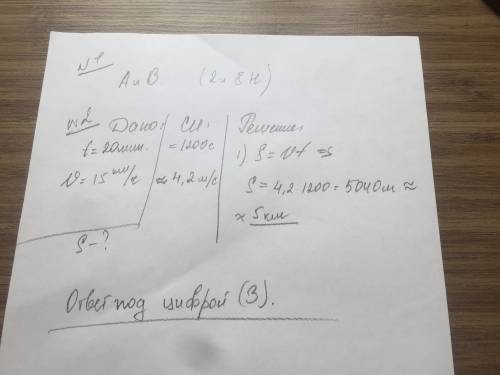 №1
А и В (2 и 8 Н)
№2 Дано: СИ: Решение:
t = 20 мин. = 1200 с 1) S = Vt ⇒
V = 15 км/ч ≈ 4,2 м/с S = 4,2 · 1200 = 5040 м ≈
≈ 5 км
S - ?
Ответ под цифрой (3).